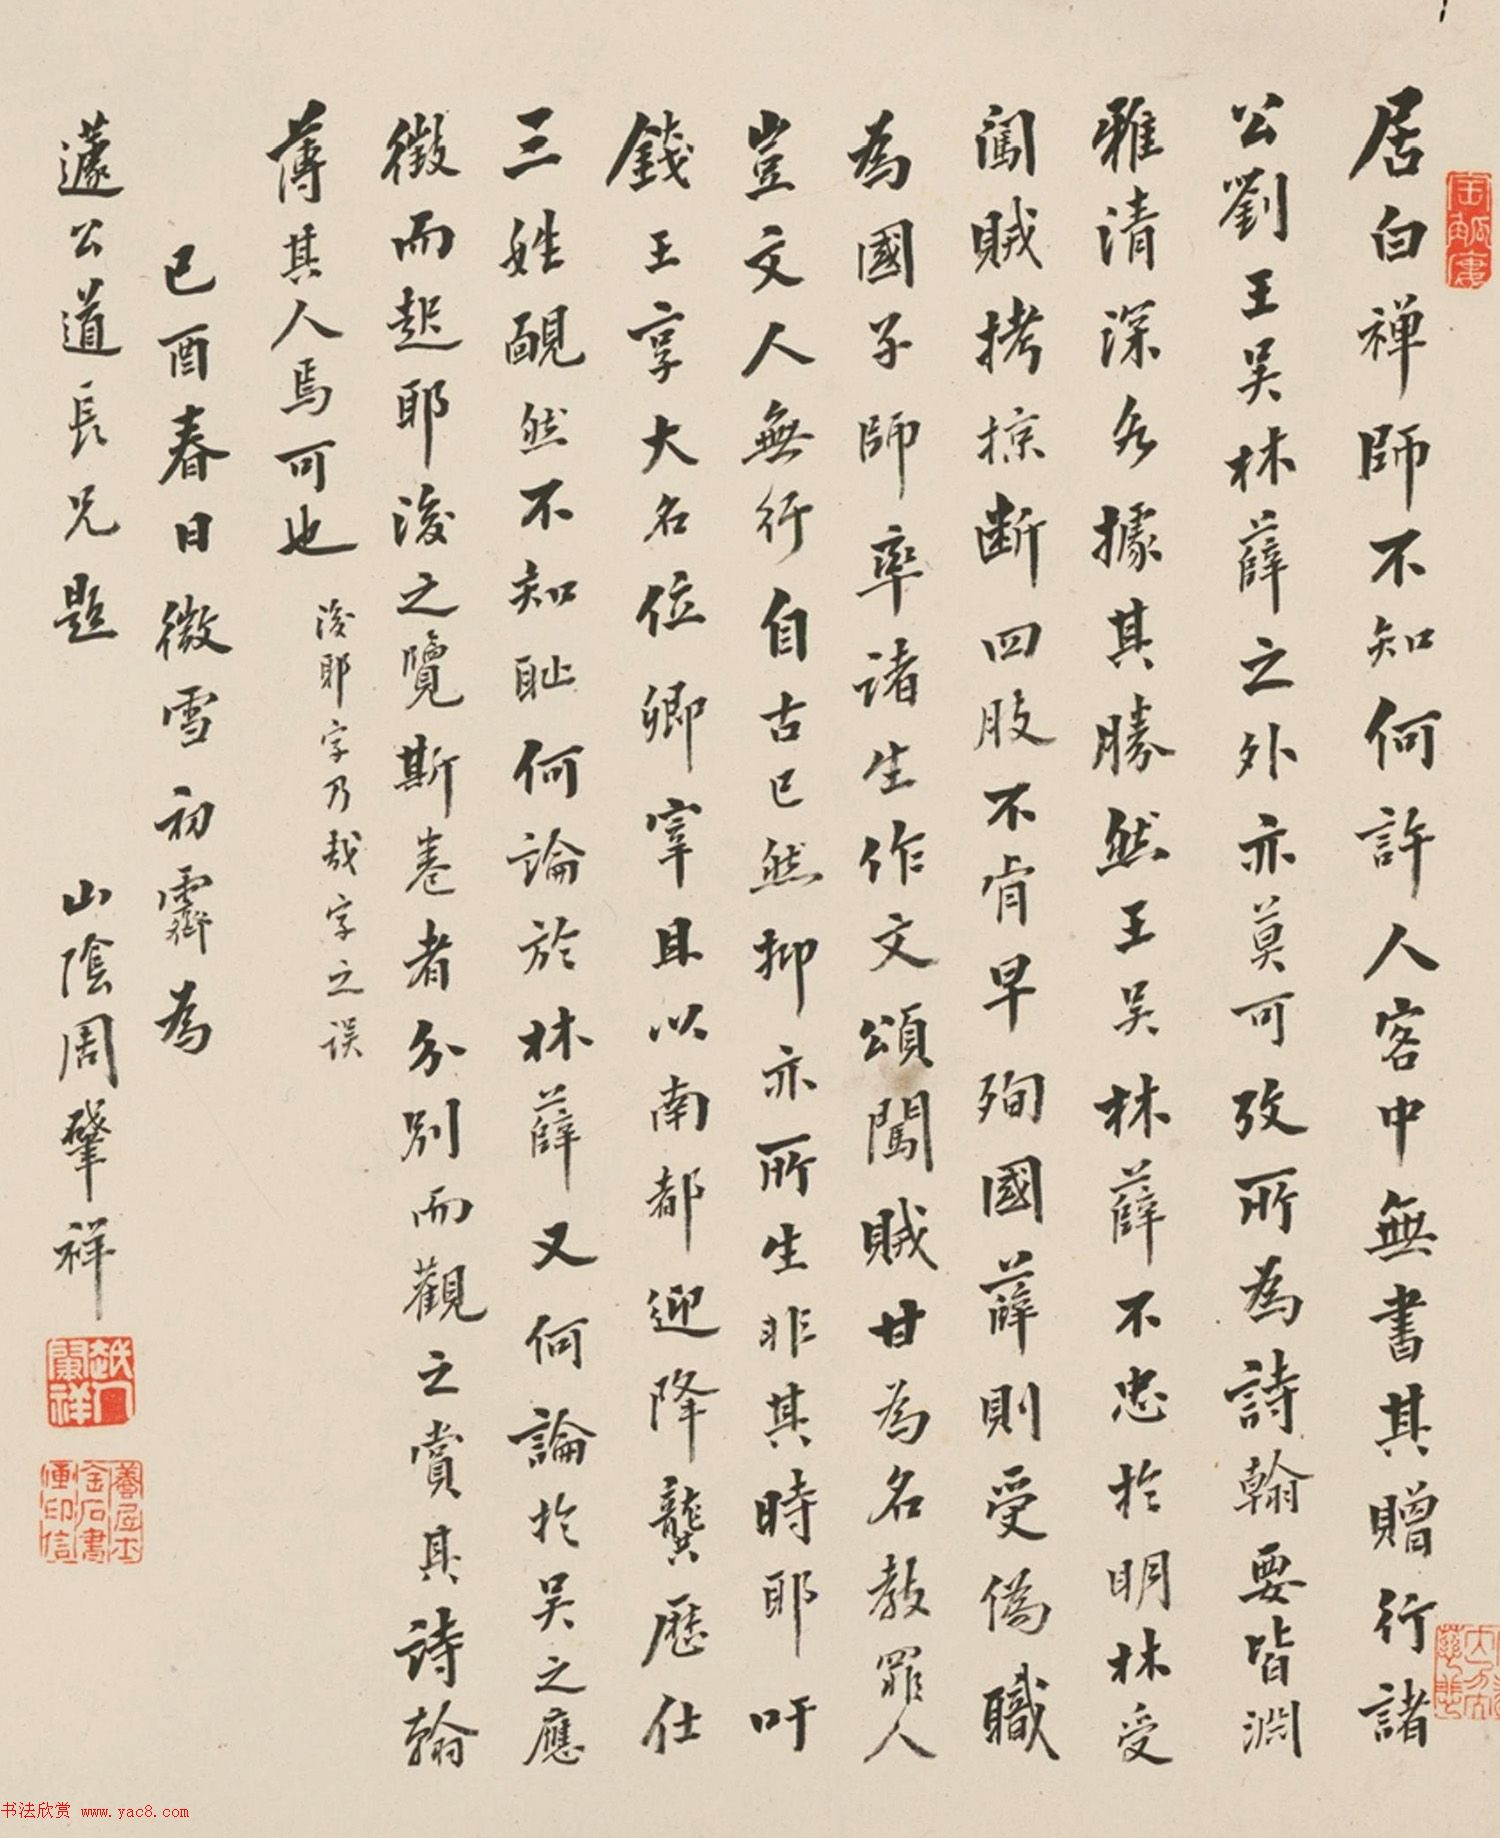 居白禅師不知何許人客中無書其贈行諸
公劉王吴林薛之外亦莫可攷所為詩翰要皆淵
雅清深各據其勝然王吴林薛不忠於明林受
闖賊拷掠断四肢不肯早殉國薛則受偽職
為國子師率諸生作文頌闖賊甘為名教罪人
豈文人無行自古已然抑亦所生非其時耶吁
錢王享大名位卿宰且以南都迎降龔歷仕
三姓靦然不知耻何論於林薛又何論於吴之應
徵而起耶後之覽斯卷者分别而觀之賞其詩翰
薄其人焉可也
後耶字乃哉字之误
已酉春日微雪初霽為
蘧公道長兄題
山陰周肇祥
周肇祥
書法欣赏 www.yac8.com